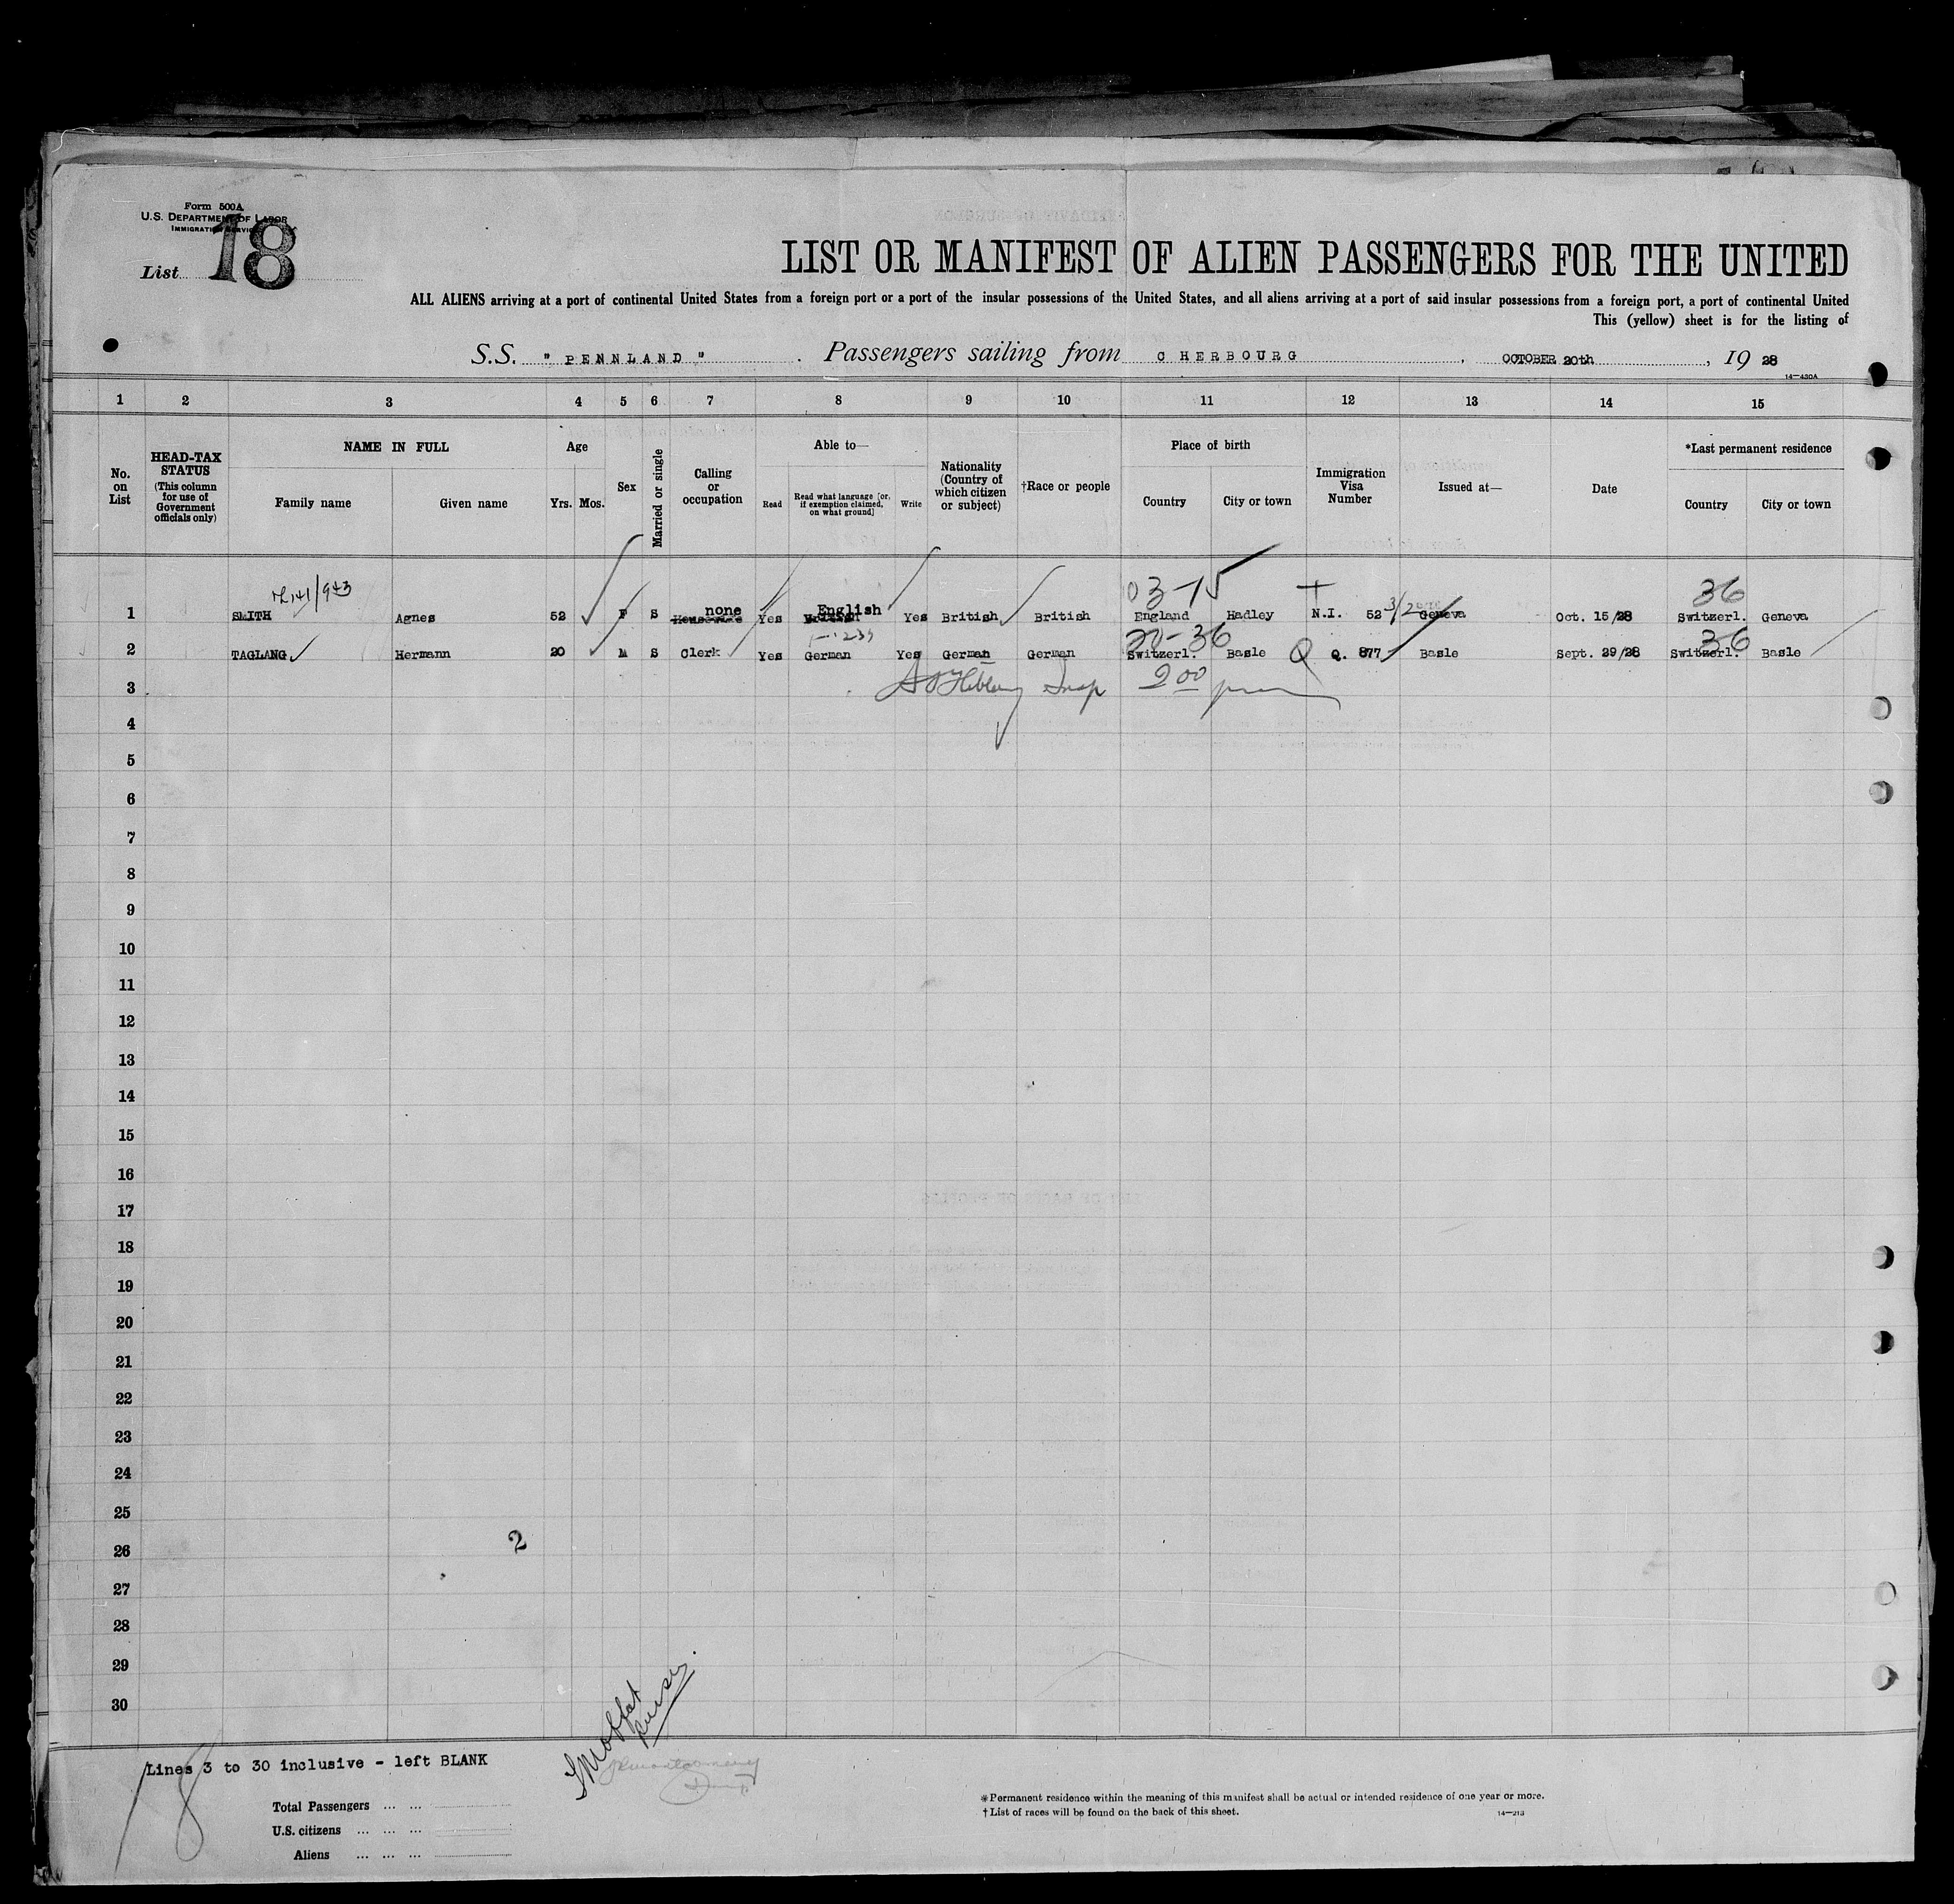 Form 500A
U.S. DEPARTMENT OF LABOR
IMMIGRATION SERVICE
List 18
LIST OR MANIFEST OF ALIEN PASSENGERS FOR THE UNITED
ALL ALIENS arriving at a port of continental United States from a foreign port or a port of the insular possessions of the United States, and all aliens arriving at a port of said insular possessions from a foreign port, a port of continental United
This (yellow) sheet is for the listing of
S.S. "PENNLAND". Passengers sailing from CHERBOURG, OCTOBER 20th, 19 28
14—430A
1 2 3 4 5 6 7 8 9 10 11 12 13 14 15
No. on List
HEAD-TAX STATUS (This column for use of Government officials only)
NAME IN FULL
Family name Given name
Age
Yrs. Mos.
Sex
Married or single
Calling or occupation
Able to—
Read Read what language [or, if exemption claimed, on what ground] Write
Nationality (Country of which citizen or subject)
†Race or people
Place of birth
Country City or town
Immigration Visa Number
Issued at—
Date
*Last permanent residence
Country City or town
03-15 + 36
none English
1 SMITH Agnes 52 F S Housewife Yes British Yes British British England Hadley N.I. 52 3/2 Geneva Oct. 15/28 Switzerl. Geneva
20-36 36
2 TAGLANG Hermann 20 M S Clerk Yes German Yes German German Switzerl. Basle Q Q. 877 Basle Sept. 29/28 Switzerl. Basle
3 Insp 2 00
4
5
6
7
8
9
10
11
12
13
14
15
16
17
18
19
20
21
22
23
24
25
26 2
27
28
29
30
Moffat
Lines 3 to 30 inclusive - left BLANK
Total Passengers ... ...
U.S. citizens ... ... ...
Aliens ... ... ...
*Permanent residence within the meaning of this manifest shall be actual or intended residence of one year or more.
†List of races will be found on the back of this sheet.
14—213